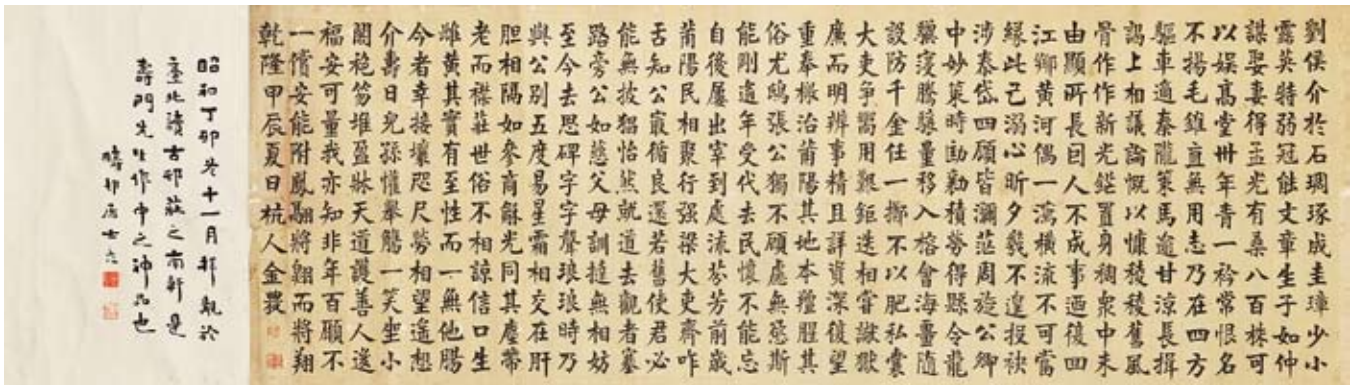 劉侯介於石琱琢成圭璋少小
露英特弱冠能文章生子如仲
謀娶妻得孟光有桑八百株可
以娱高堂卅年青一衿常恨名
不揚毛錐直無用志乃在四方
驅車適秦隴策馬逾甘涼長揖
謁上相議論慨以慷稜稜舊風
骨作作新光鋩置身稠衆中未
由顯所長因人不成事迺復四
江鄉黄河偶一瀉橫流不可當
緣此己溺心昕夕幾不遑投袂
涉泰岱四顧皆瀰茫周旋公卿
中妙策時劻勷積勞得縣令龍
驤寖騰驤量移入榕會海畺隨
設防千金任一擲不以肥私囊
大吏爭嚮用艱鉅迭相當讞獄
廉而明辨事精且詳資深復望
重奉檄治莆陽其地本羶腥其
俗尤鴟張公獨不顧慮無惡斯
能剛遠年受代去民懷不能忘
自後屢出宰到處流芬芳前歲
莆陽民相聚行强梁大吏齊咋
舌知公最循良還若舊使君必
能無披猖怡然就道去觀者塞
路旁公如慈父母訓撻無相妨
至今去思碑字字聲琅琅時乃
與公别五度易星霜相交在肝
胆相隔如參商龢光同其塵帶
老而襟莊世俗不相諒信口生
雌黄其實有至性而一無他腸
今者幸接壤咫尺勞相望遥想
介壽日兒孫懽舉觴一笑坐小
閣袍笏堆盈牀天道護善人遂
福安可量我亦知非年百願不
一償安能附鳳翮將翱而將翔
乾隆甲辰夏日杭人金農
昭和丁卯冬十一月拜觀於
臺北讀古邨莊之南軒是
壽門先生作中之神品也
邨居士